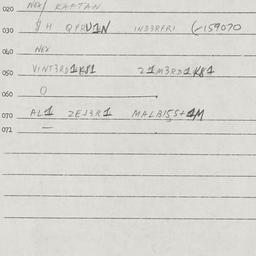 020 NEX/ KAFTAN
030 H QFRU1N IND3RFRI (-159070
040 NEX
050 VINT3RD1K81 21M3RD1K81
060 0
070 AL1 2EJ3R1 MALB155+1M
071 —